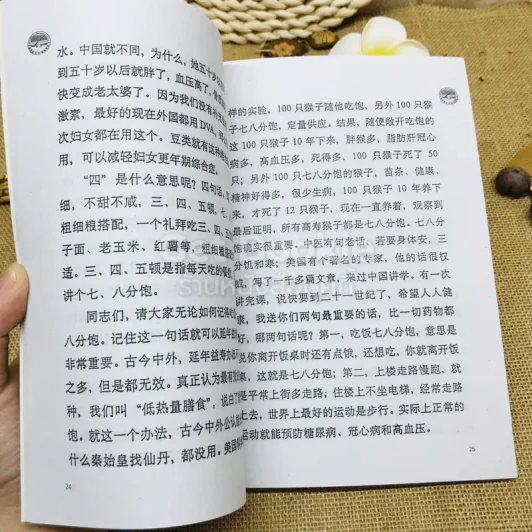 水。中国就不同，为什么，她五十岁
到五十岁以后就胖了，血压高了，
快变成老太婆了。因为我们没有
激素，最好的现在外国都用DNA，
次妇女都在用这个。豆类就有这种
用，可以减轻妇女更年期综合症。
“四”是什么意思呢？四句话，
细，不甜不咸，三、四、五顿，
粗细粮搭配，一个礼拜吃三、四、
子面、老玉米、红薯等，
适。三、四、五顿是指每天吃的餐
讲个七、八分饱。
同志们，请大家无论如何记得
八分饱。记住这一句话就可以延年
非常重要。古今中外，延年益寿办
之多，但是都无效。真正认为最有
种，我们叫“低热量膳食”，说白了
饱。就这一个办法，古今中外公认
什么秦始皇找仙丹，都没用。美国
24
样的实验，100 只猴子随他吃饱，另外 100 只猴
子七八分饱，定量供应。结果，随便敞开吃饱的
100 只猴子 10 年下来，胖猴多，脂肪肝冠心
病多，高血压多，死得多，100 只猴子死了 50
只；另外 100 只七八分饱的猴子，苗条、健康、
精神好得多，很少生病，100 只猴子 10 年养下
来，才死了 12 只猴子，现在一直养着，观察到
最后证明，所有高寿猴子都是七八分饱。七八分
饱确实很重要。中医有句老话，若要身体安，三
分饥和寒；美国有个著名的专家，他的话很权
，来过中国讲学。有一次
讲完课，说快要到二十一世纪了，希望人人健
康，我送你们两句最重要的话，比一切药物都
，哪两句话呢？第一，吃饭七八分饱，意思是
说你离开饭桌时还有点饿，还想吃，你就离开饭
，这就是七八分饱；第二，上楼走路慢跑，就
是平常上街多走路；住楼上不坐电梯，经常走路
上去，世界上最好的运动是步行。实际上正常的
运动就能预防糖尿病、冠心病和高血压。
25